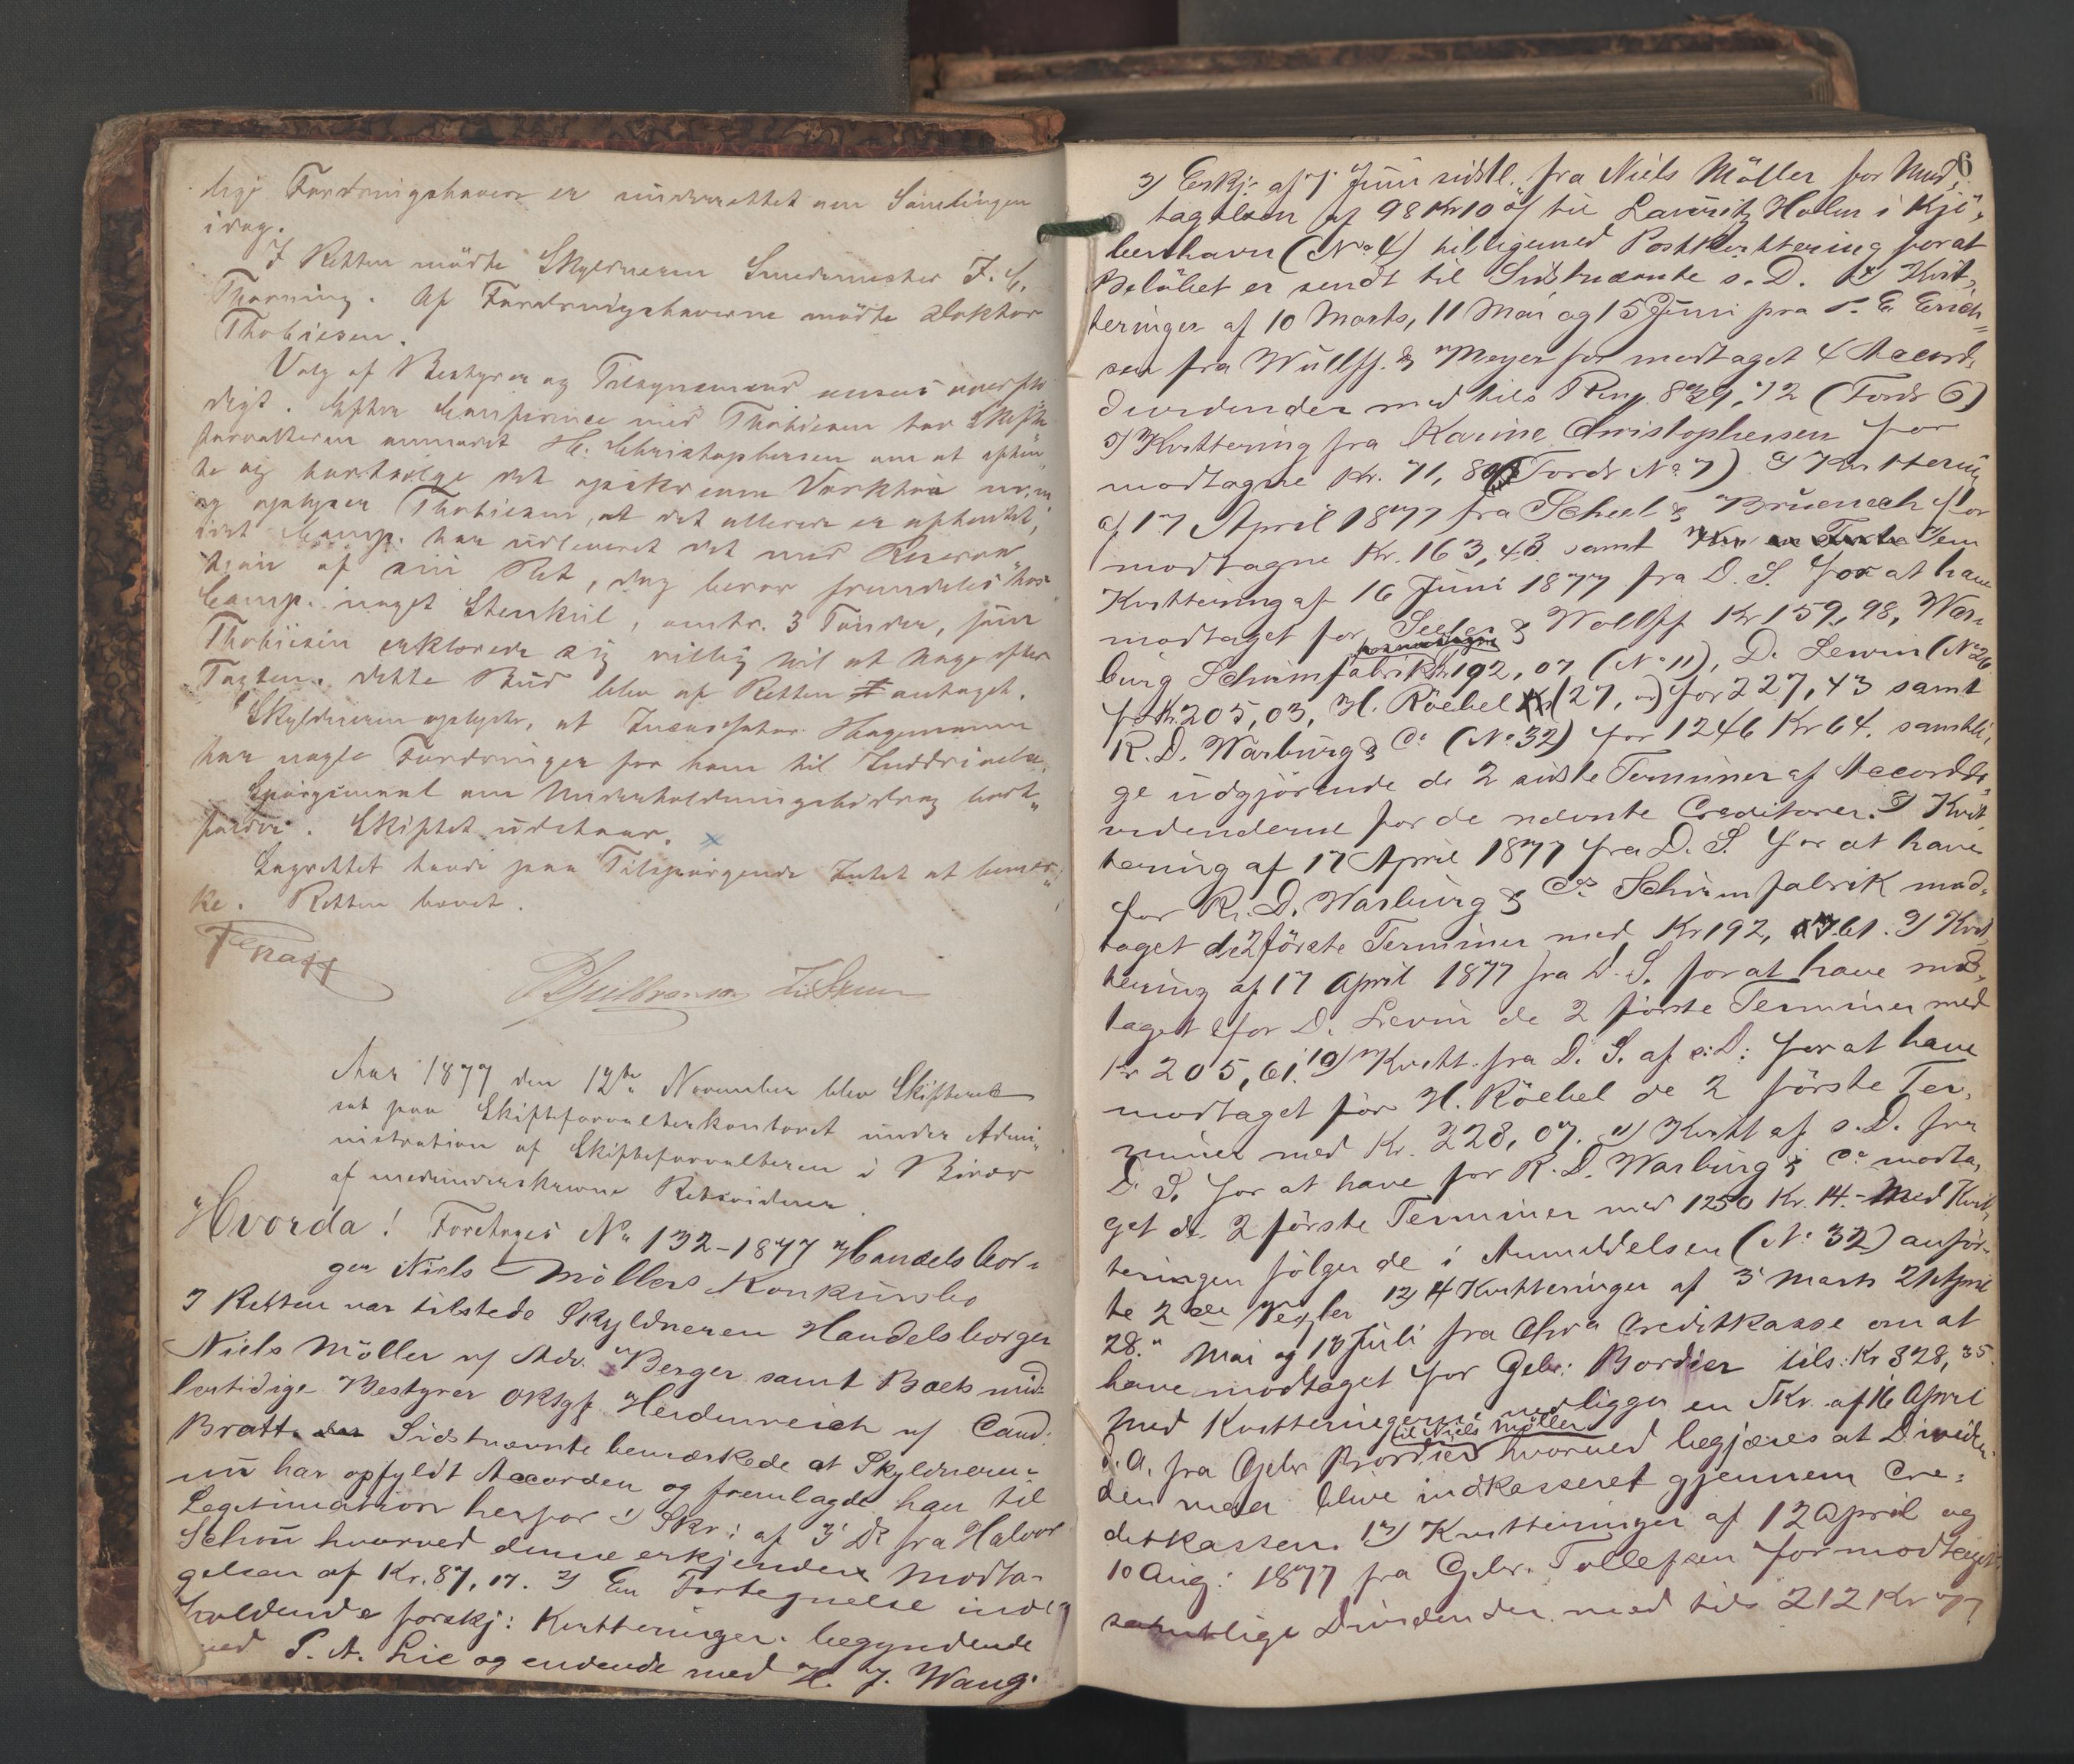 lige Fordringshavere er underrettet om Samlingen
idag.
I Retten mödte Skyldneren Smedemester J. C.
Thorning. Af Fordringshaverne mödte Doktor
Thobiesen.
Valg af Bestyrer og Tilsynsmænd ansaaes overflö
digt. Efter Conference med Thobiesen har Skifte
forvalteren anmodet H. Christophersen om at afhen„
te og bortsælge det opskrevne Værktöi
og oplyser Thobiesen, at det allerede er afhentet,
idet Comp. har udleveret det med Reserva„
tion af sin Ret, dog beror fremdeles hos
Comp. noget Stenkul, omtr. 3 Tönder, som
Thobiesen erklærede sig villig til at tage efter
Taxten. Dette Bud blev af Retten antaget.
Skyldneren oplyste, at Incassator Hagemann
har nogle Fordringer for ham til Inddrivelse.
Spörgsmaal om Underholdningsbidrag bort„
faldt. Skiftet udstaar.
Lagrettet havde paa Tilspörgende Intet at bemær„
ke. Retten hævet.
Aar 1877 den 12te November blev Skifteret
sat paa Skifteforvalterkontoret under Admi„
nistration af Skifteforvalteren i Biværelse
af medunderskrevne Retsvidner.
Hvorda! Foretages No 132-1877 Handelsbor„
ger Niels Möllers Konkursbo
I Retten var tilstede Skyldneren Handelsborger
Niels Möller v/ Adv. Berger samt Boets mid„
lertidige Bestyrer ORSgf Heidenreich v/ Cand:
Bratt. Sidstnævnte bemærkede at Skyldneren
nu har opfyldt Accorden og fremlagde han til
Legitimation herfor 1) Skr: af 3 Ds fra Halvor
Schou hvorved denne erkjender Modta„
gelsen af Kr. 87,17. 2) En Fortegnelse inde„
holdende forskj: Kvitteringer begyndende
med P. A. Lie og endende med H. J. Wang.
6
3) Erkj: af 7 Juni sidstl. fra Niels Möller for Mod„
tagelsen af 98 Kr 10 öf til Lauritz Holm i Kjö„
benhavn (No 4) tilligemed Postkvittering for at
Belöbet er sendt til Sidstnævnte s. D. 4) Kvit„
teringer af 10 Marts, 11 Mai og 15 Juni fra E. Erich„
sen fra Wulff & Meyer for modtaget 4 Accord„
dividender med tils (Fordr 6)
5) Kvittering fra Karine Christophersen for
modtagne Kr. 71, (Fordr No 7) 6) Kvittering
af 17 April 1877 fra Scheel & Bruenech for
modtagne Kr. 163,43 samt
Kvittering af 16 Juni 1877 fra D. S. for at have
modtaget for Seeler & Wolff Kr 159,98, War„
burg Schirmfabrik Kr 192,07 (No 11), D. Lewin (No 26
for Kr. 205,03, H. Röebel (27, ) for 227,43 samt
R. D. Warburg & Co (No 32) for 1246 Kr 64. samtli„
ge udgjörende de 2 sidste Terminer af Accordd„
videnderne for de nævnte Creditorer. 7) Kvit„
tering af 17 April 1877 fra D. S. for at have
for R. D. Warburg & Cos Schirmfabrik mod„
taget de 2 förste Terminer med Kr 192, 61. 9) Kvit„
tering af 17 April 1877 fra D. S. for at have mod„
taget for D. Levin de 2 förste Terminer med
Kr 205,61. 10) Kvitt. fra D. S. af s. D: for at have
modtaget för H. Röebel de 2 förste Ter„
miner med Kr. 228,07. 11) Kvitt af s. D. fra
D. S. for at have for R. D. Warburg & Co modta„
get de 2 förste Terminer med 1250 Kr. 14. Med Kvit„
teringen fölger de i Anmeldelsen (No 32) anför„
te 2de Vexler 12) 4 Kvitteringer af 3 Marts 21 April
28. Mai og 10 Juli fra Chra Creditkasse om at
have modtaget for Gebr: Bordier tils: Kr 328,35.
Med Kvitteringerne vedligger en Skr. af 16 April
til Niels Möller
d. A. fra Gebr Bordier hvorved begjæres at Dividen„
den maa blive indkasseret gjennem Cre„
ditkassen. 13) Kvitteringer af 12 April og
10 Aug: 1877 fra Gebr. Tollefsen for modtaget
samtlige Dividender med tils 212 Kr 77